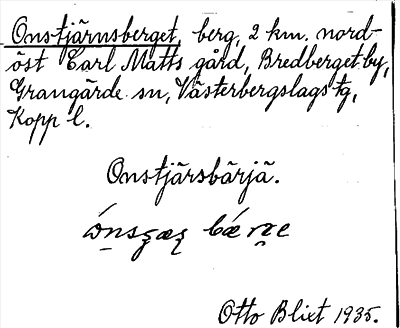 Onstjärnsberget, berg, 2 km. nord-
öst Carl Matts gård, Bredberget by,
Grangärde sn, Västerbergslags tg,
Kopp l.
Onstjärsbärjä.
Otto Blixt 1935.